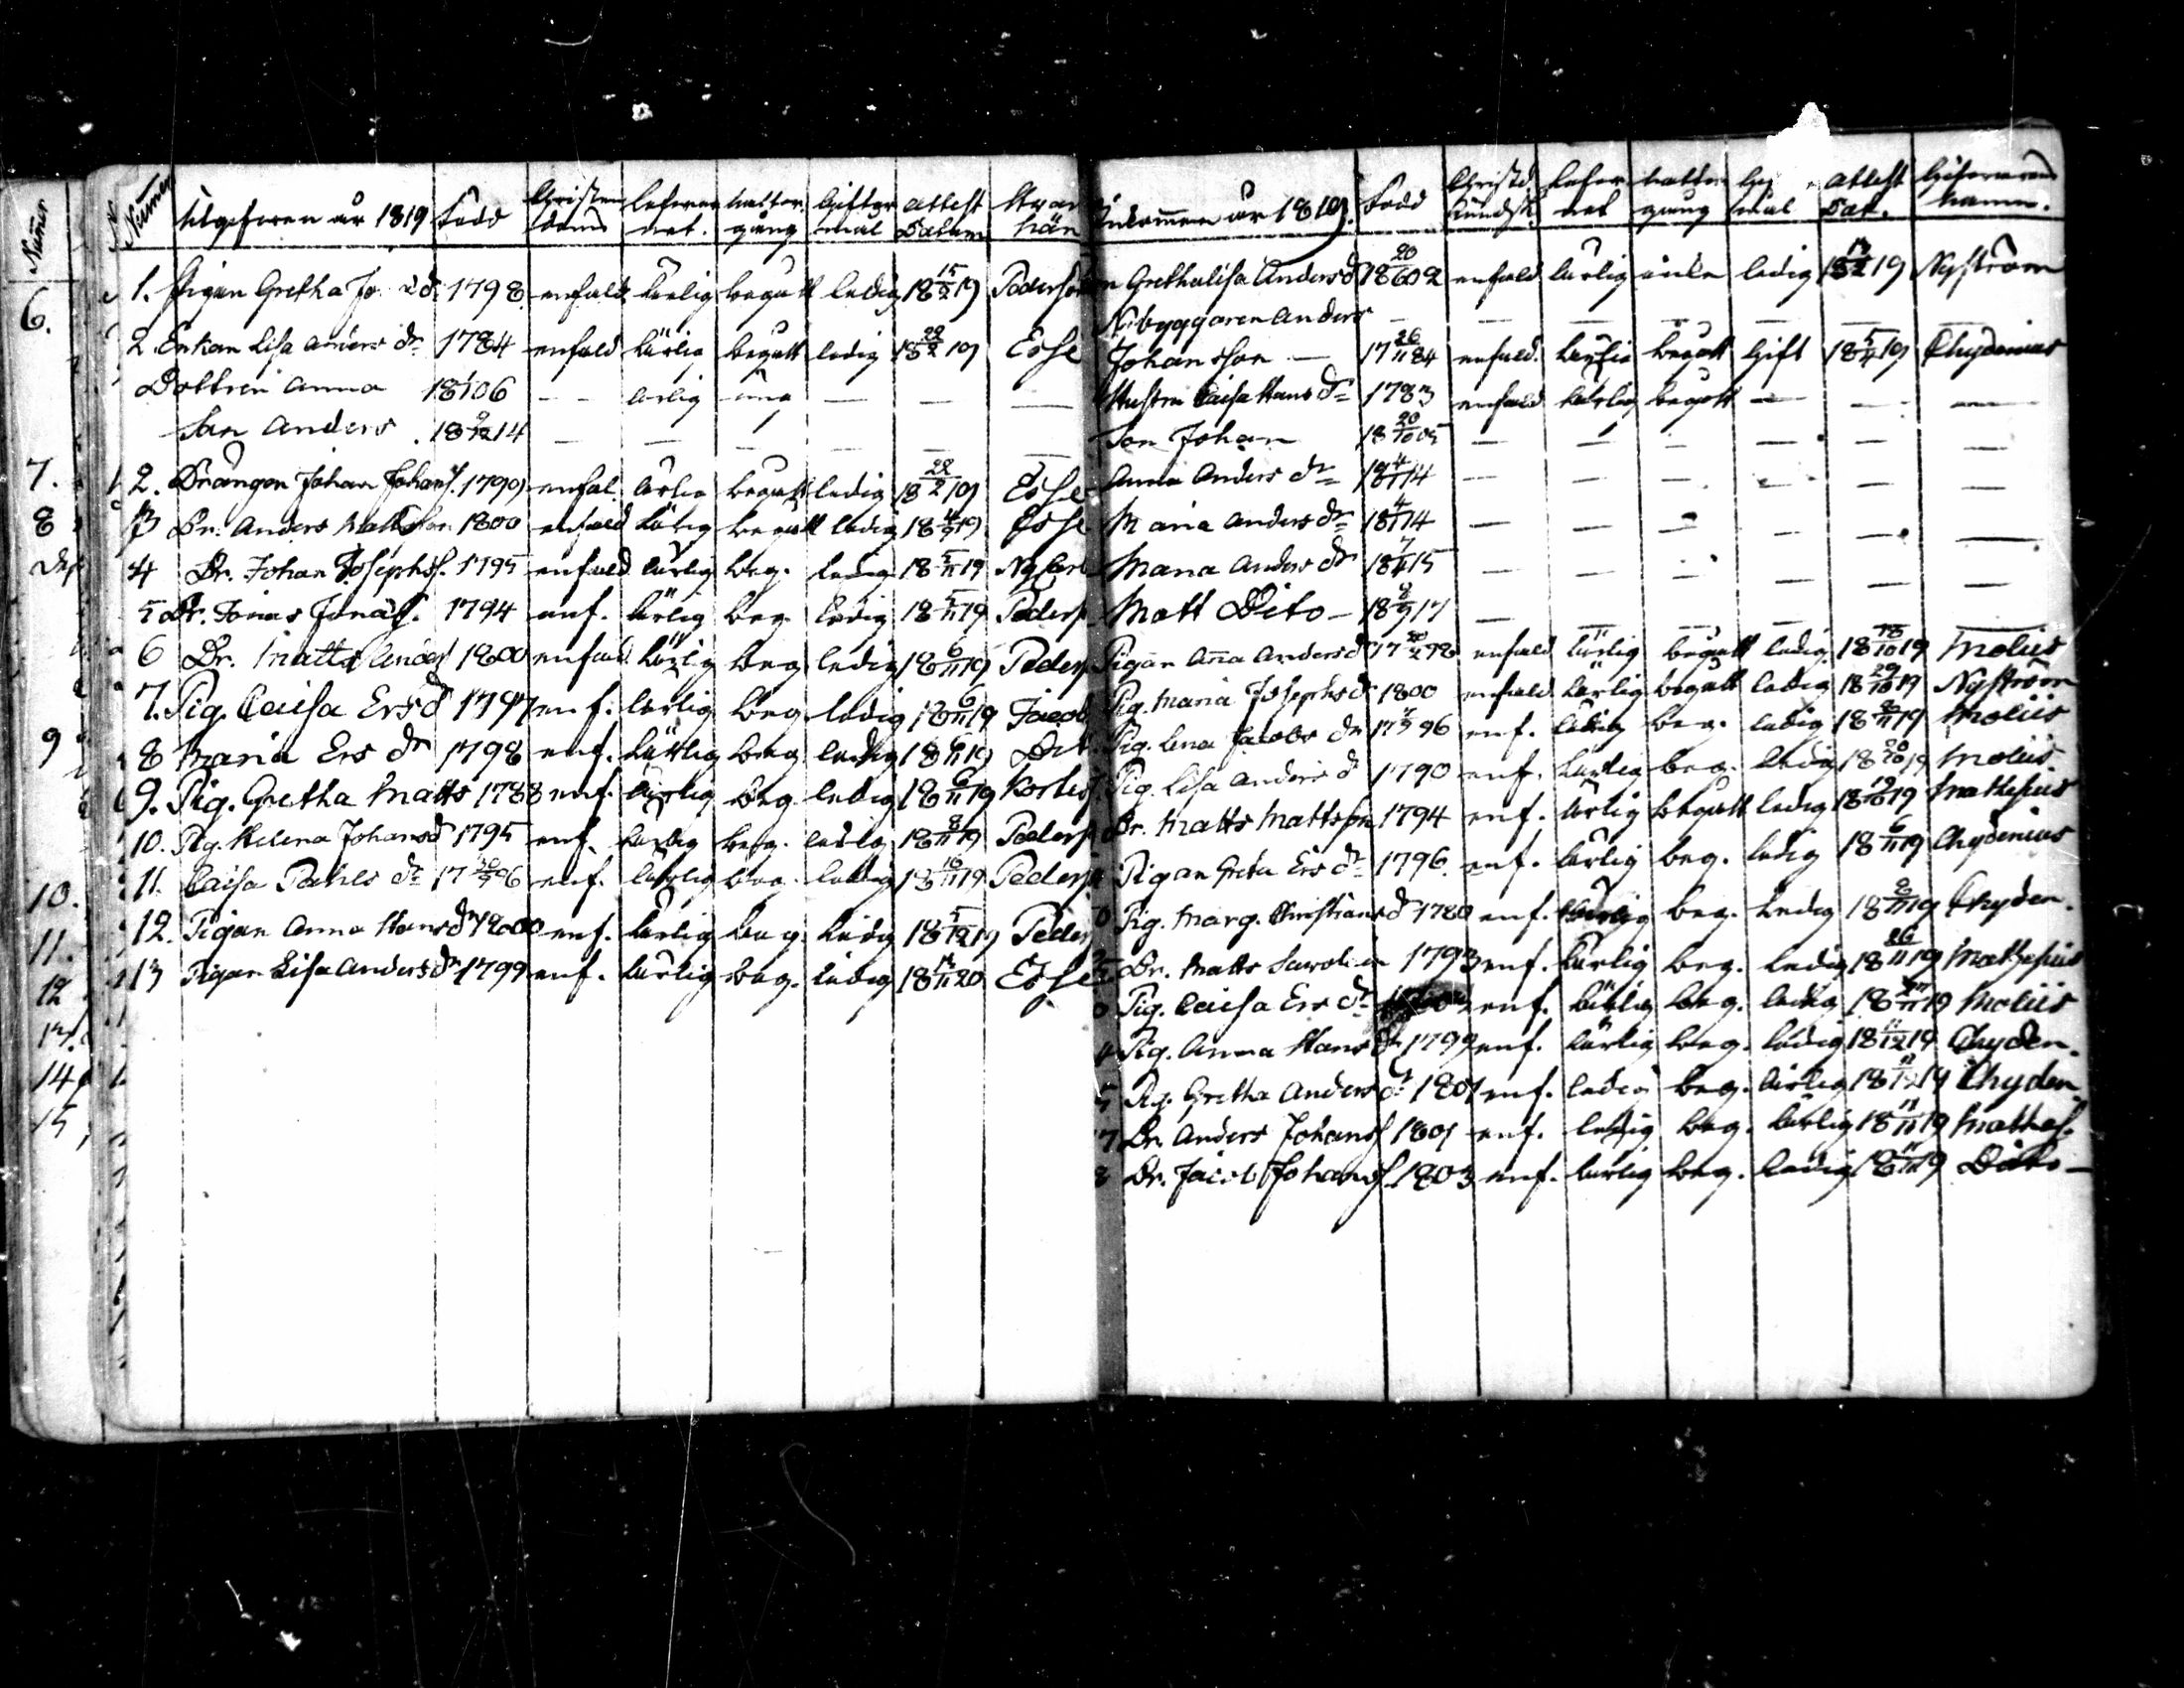 Numer
6.
7.
8
9
10.
11.
12
13.
14
15
Numer Utgifven år 1819 Född Christendom Lefvernet. Nattvargång Giftermål Attest Datum Hvarhän
1. Pigan Gretha Jo dr 1798 enfald. ärlig begått ledig 18 15/2 19 Pedersö
2 Enkan Lisa Anders dr 1784 enfald ärlig begått ledig 18 22/2 19 Esse
Dottren Anna 18 1/1 06 — ärlig inga — — —
Son Anders 18 9/12 14 — — — — — —
2. Drängen Johan Johans. 1790 enfal. ärlig begått ledig 18 22/2 19 Esse
3 Dr. Anders Mattsson 1800 enfald ärlig begått ledig 18 19 Esse
4 Dr. Johan Josephs. 1795 enfald ärlig beg. ledig 18 5/11 19 Nycarl
5 Dr. Jonas Jonas. 1794 enf. ärlig beg. ledig 18 5/11 19 Peders
6 Dr. Matts Anders 1800 enfald ärlig beg ledig 18 6/11 19 Peders
7. Pig. Caisa Ers d 1797 enf. ärlig beg ledig 18 6/11 19 Jacob
8 Maria Ers dr 1798 enf. ärlig beg ledig 18 6/11 19 Dit.
9. Pig. Gretha Matts 1788 enf. ärlig beg ledig 18 6/11 19 Kortes
10. Pig. Helena Johans d 1795 enf. ärlig beg. ledig 18 8/11 19 Peders
11. Caisa Pahls dr 17 96 enf. ärlig beg. ledig 18 16/11 19 Peders
12. Pigan Anna Hans dr 1800 enf. ärlig beg. ledig 18 5/12 19 Peders
13 Pigan Lisa Anders dr 1799 enf. ärlig beg. ledig 18 20 Esse
Inkommen år 1819. Född Christd. Kundsk. Lefvernet Nattvargång mål Attest Dat. Gifvarens namn.
Grethalisa Anders d 18 20/6 02 enfald ärlig ledig 18 19 Nyström
Nybyggaren Anders — — — — — —
Johansson — 17 26/11 84 enfald. ärlig begått Gift 18 5/4 19 Chydenius
Hustru Caisa Hans dr 1783 enfald ärlig begått — — —
Son Johan 18 20/10 05 — — — — — —
Anna Anders dr 18 4/1 14 — — — — — —
Maria Anders dr 18 4/1 14 — — — — — —
Maria Anders dr 18 15 — — — — — —
Matt Dito — 18 8/9 17 — — — — — —
Pigan Anna Anders d 17 98 enfald ärlig begått ledig 18 18/10 19 Molius
Pig. Maria Josephs dr 1800 enfald ärlig begått ledig 18 29/10 19 Nyström
Pig. Lena Jacobs dr 17 96 enf. ärlig beg. ledig 18 19 Molius
Pig. Lisa Anders d 1790 enf. ärlig beg. ledig 18 20/10 19 Molius
Dr. Matts Mattsson 1794 enf. ärlig begått ledig 18 19 Mathesius
Pigan Greta Ers dr 1796. enf. ärlig beg. ledig 18 6/11 19 Chydenius
Pig. Marg. Christians d 1780 enf. ärlig beg. ledig 18 8/11 19 Chyden.
Dr. Matts 1793 enf. ärlig beg. ledig 18 26/11 19 Mathesius
Pig. Caisa Ers dr enf. ärlig beg. ledig 18 19 Molius
Pig. Anna Hans dr 1799 enf. ärlig beg. ledig 18 11/12 19 Chyden.
Pig. Gretha Anders dr 1801 enf. ledig beg. ärlig 18 19 Chyden
7 Dr. Anders Johans 1801 enf. ledig beg. ärlig 18 11/11 19 Mathes.
8 Dr. Jacob Johans 1803 enf. ärlig beg. ledig 18 19 Dito —